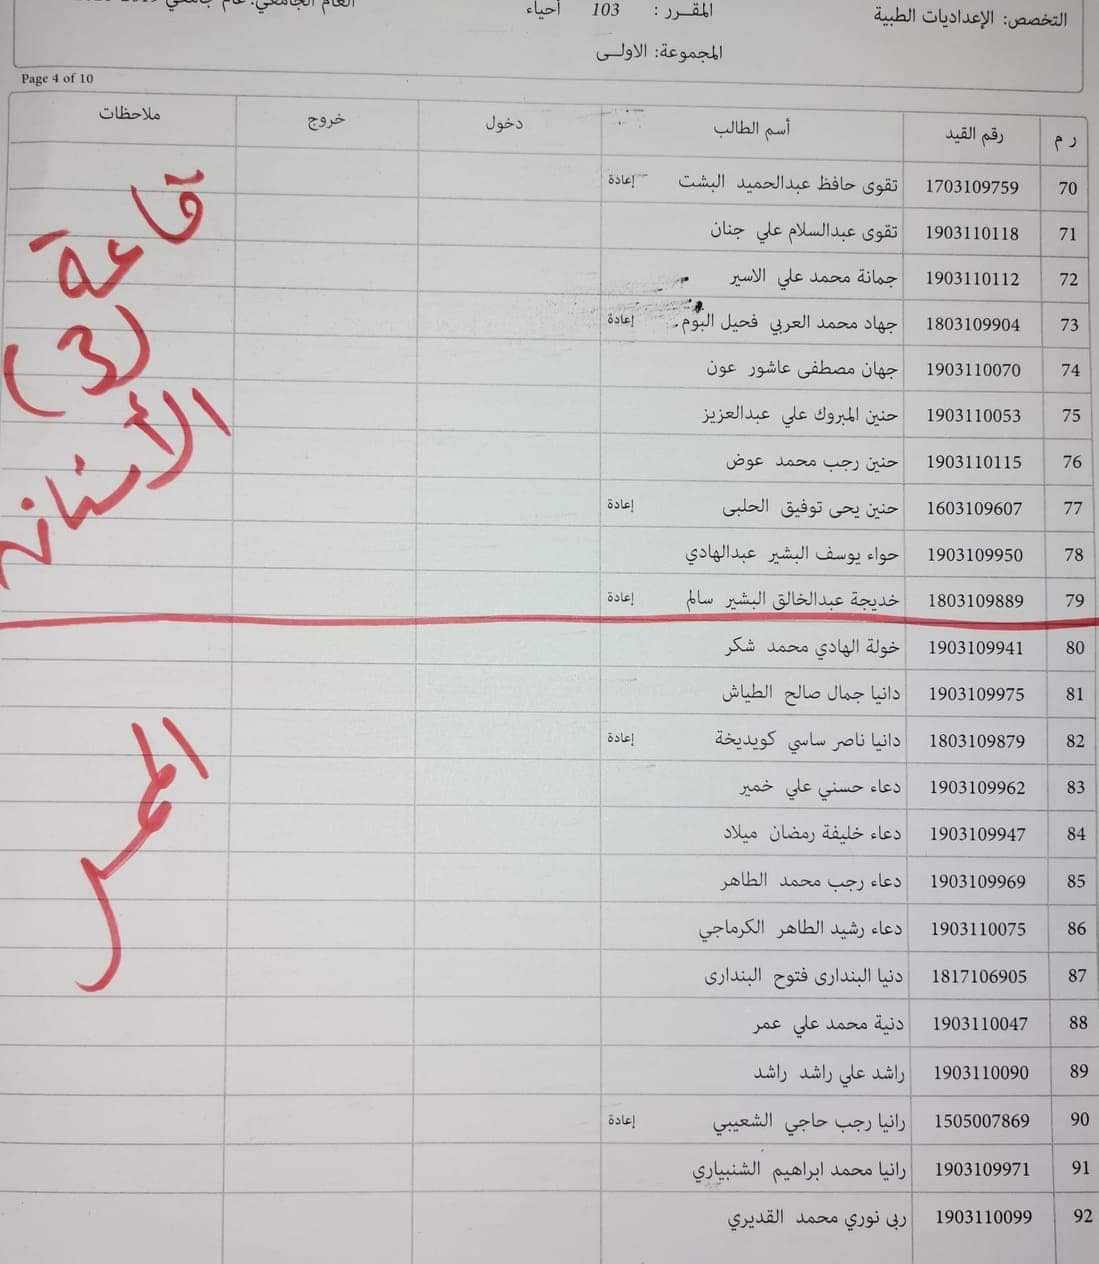 التخصص: الإعداديات الطبية
المقــرر : 103 أحياء
العام الجامعي: عام جامعي
المجموعة: الاولــى
Page 4 of 10
ر م رقم القيد أسم الطالب دخول خروج ملاحظات
70 1703109759 تقوى حافظ عبدالحميد البشت إعادة
71 1903110118 تقوى عبدالسلام علي جنان
72 1903110112 جمانة محمد علي الاسير
73 1803109904 جهاد محمد العربي فحيل البوم إعادة
74 1903110070 جهان مصطفى عاشور عون
75 1903110053 حنين المبروك علي عبدالعزيز
76 1903110115 حنين رجب محمد عوض
77 1603109607 حنين يحى توفيق الحلبى إعادة
78 1903109950 حواء يوسف البشير عبدالهادي
79 1803109889 خديجة عبدالخالق البشير سالم إعادة
قاعة
(3)
الأسنان
80 1903109941 خولة الهادي محمد شكر
81 1903109975 دانيا جمال صالح الطياش
82 1803109879 دانيا ناصر ساسي كويديخة إعادة
83 1903109962 دعاء حسني علي خمير
84 1903109947 دعاء خليفة رمضان ميلاد
85 1903109969 دعاء رجب محمد الطاهر
86 1903110075 دعاء رشيد الطاهر الكرماجي
87 1817106905 دنيا البندارى فتوح البندارى
88 1903110047 دنية محمد علي عمر
89 1903110090 راشد علي راشد راشد
90 1505007869 رانيا رجب حاجي الشعيبي إعادة
91 1903109971 رانيا محمد ابراهيم الشنبياري
92 1903110099 ربى نوري محمد القديري
الممر